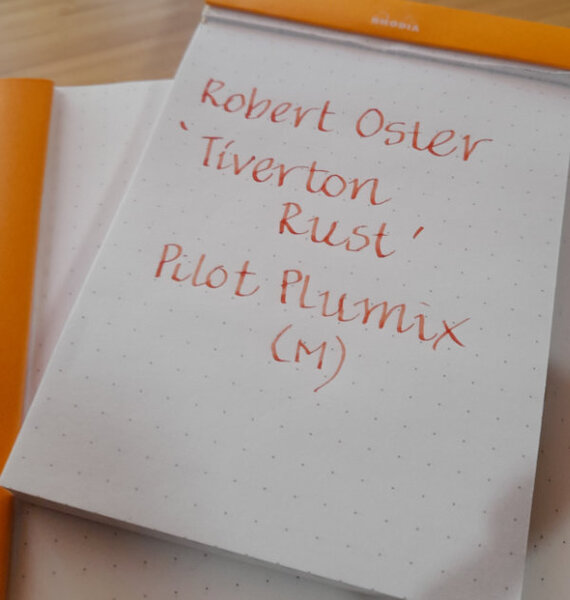 RHODIA
Robert Oster
'Tiverton
Rust'
Pilot Plumix
(M)